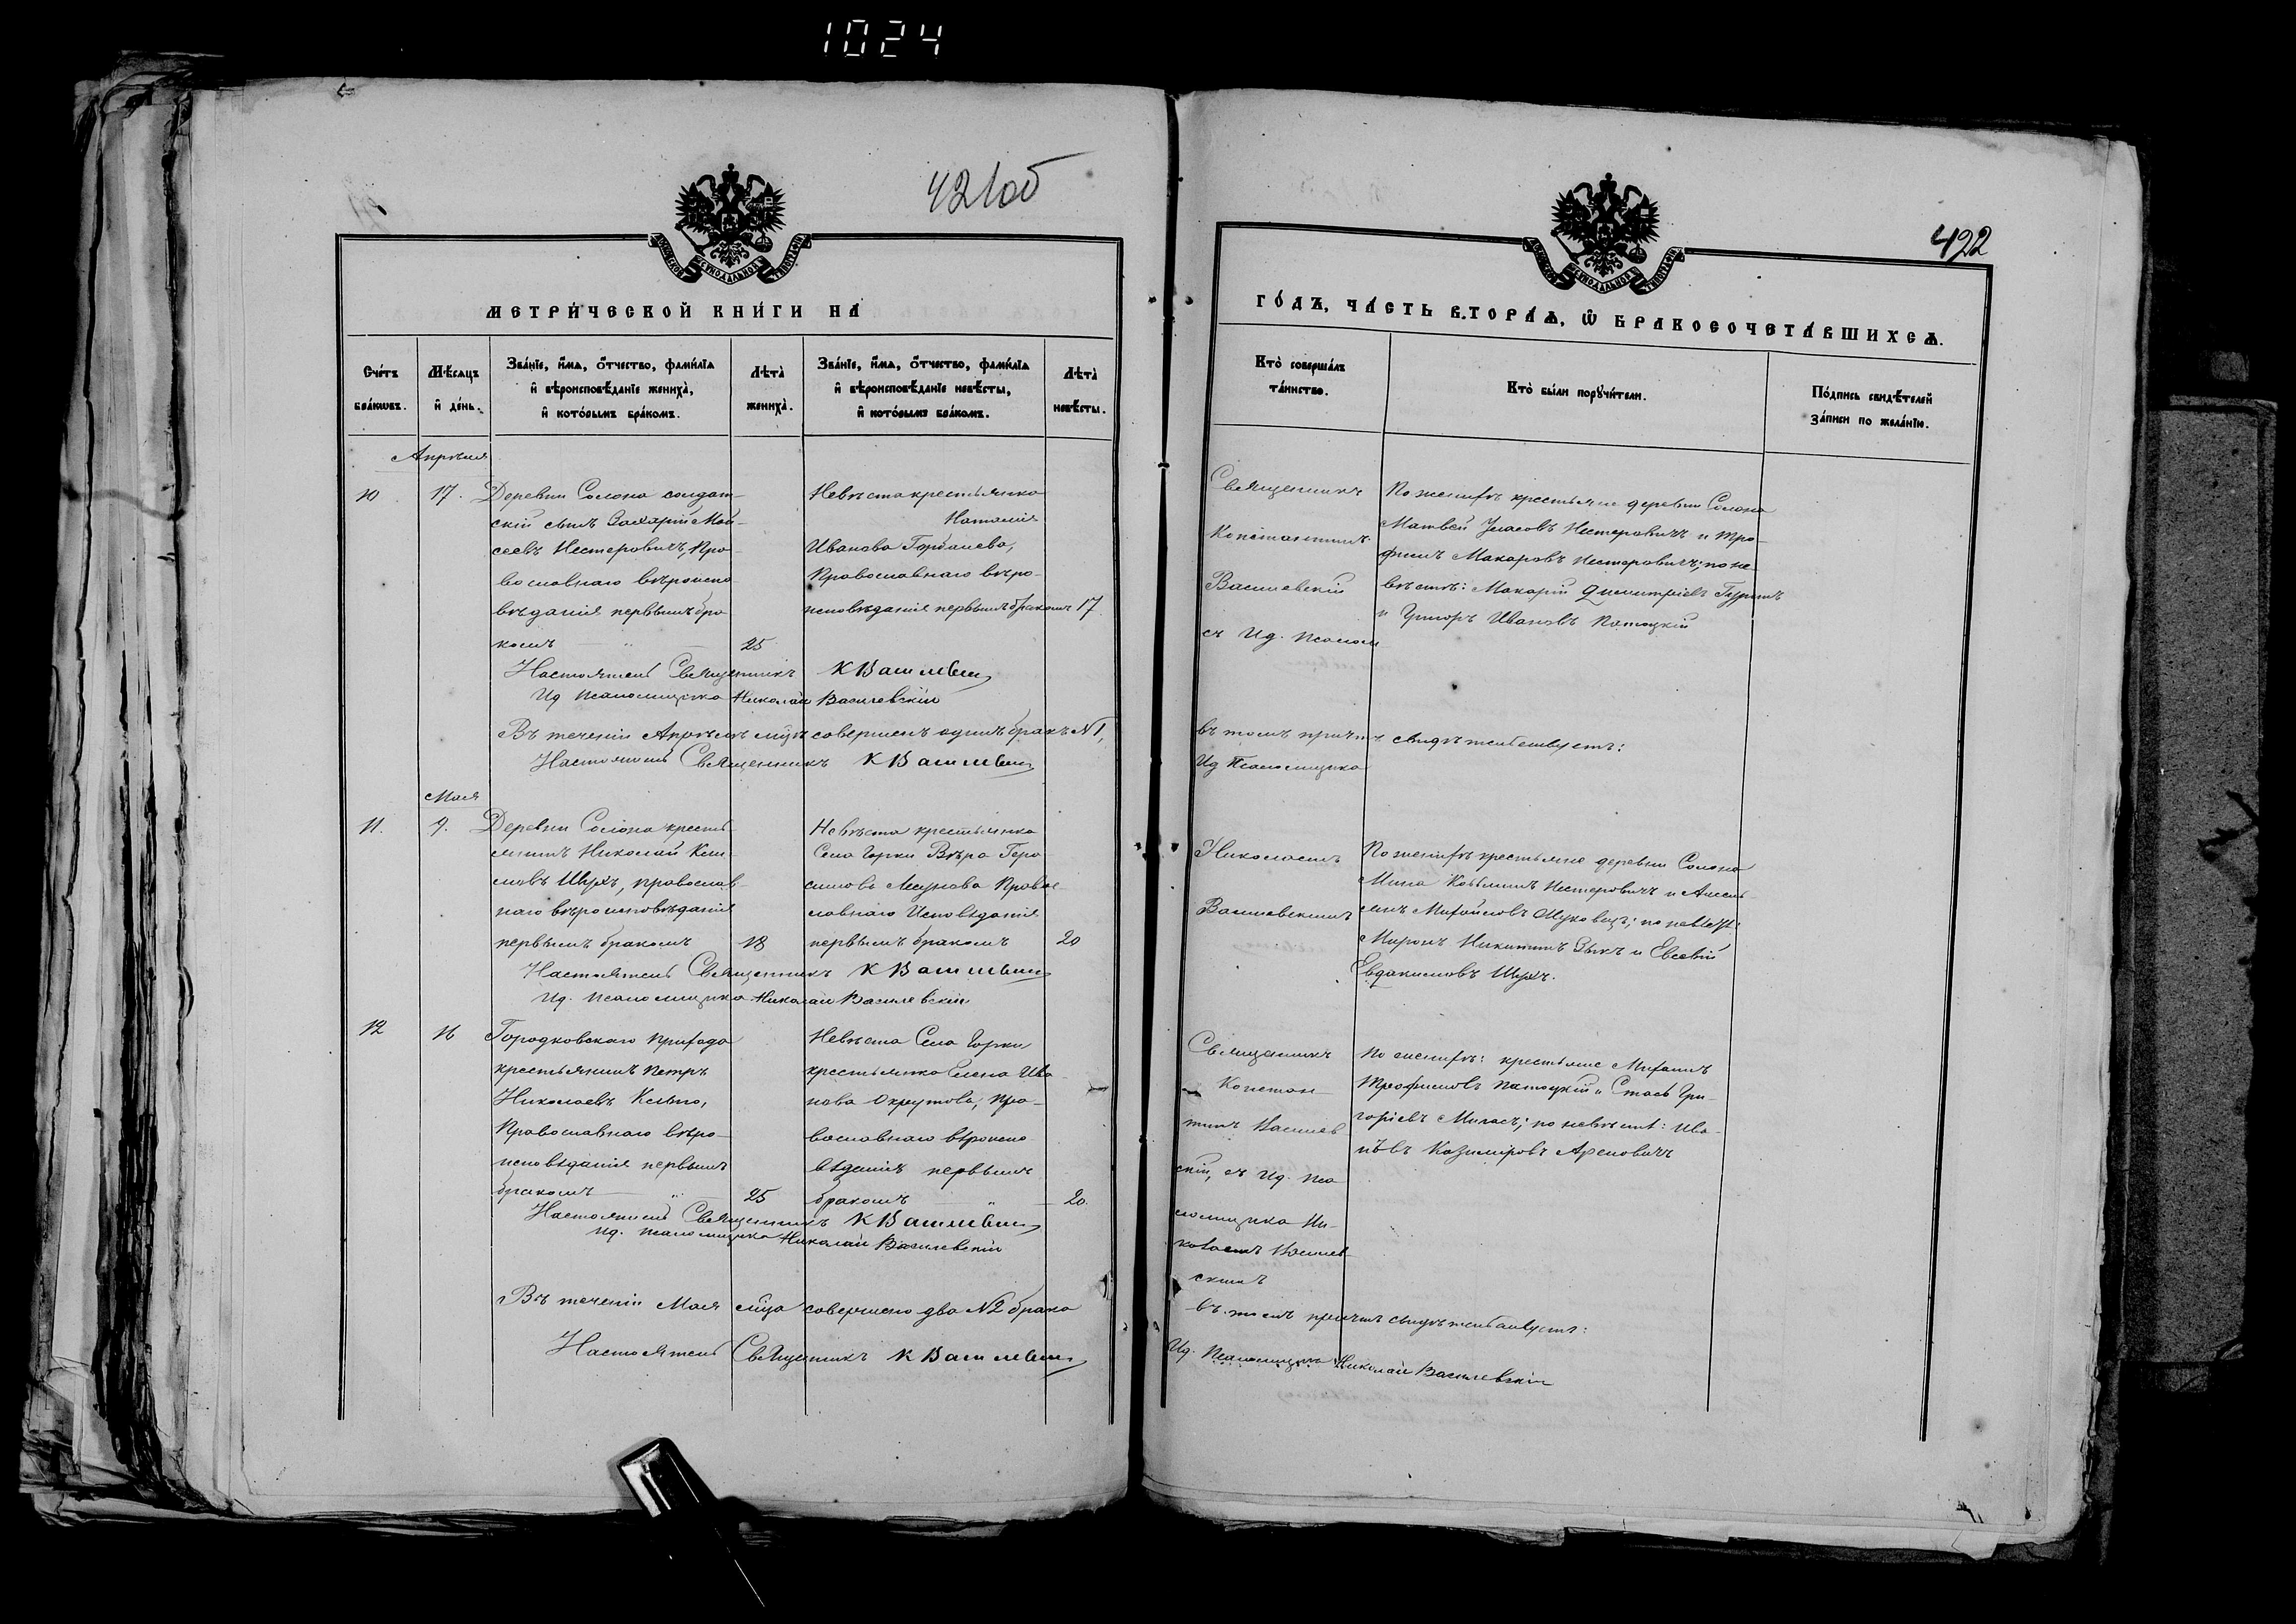 1024
421об
МЕТРИ́ЧЕСКОЙ КНИ́ГИ НА
Сче́тъ бра́кωвъ.
Мѣ́сяцъ и҆ де́нь.
Зва́нїе, и҆́мѧ, ѻ҆́тчество, фами́лїѧ и҆ вѣроисповѣ́данїе жениха̀, и҆ кото́рымъ бра́комъ.
Лѣта̀ жениха̀.
Зва́нїе, и҆́мѧ, ѻ҆́тчество, фами́лїѧ и҆ вѣроисповѣ́данїе невѣ́сты, и҆ кото́рымъ бра́комъ.
Лѣта̀ невѣ́сты.
Апрѣля
10
17.
Деревни Солона солдат-
скій сынъ Захарій Мой-
сеевъ Нестеровичъ, Пра-
вославнаго вѣроиспо
вѣданія первымъ бра
комъ
25
Невѣста крестьянка
Наталія
Иванова
Православнаго вѣро-
исповѣданія первымъ бракомъ 17
Настоятель Священникъ К Василевскій
Ид Псаломщика Николай Василевскій
Въ теченіи Апрѣля мцѣ совершенъ одинъ бракъ N 1,
Настоятель Священникъ К Василевскій
Мая
11.
9.
Деревни Солона кресть-
янинъ Николай
Шухъ, православ-
наго вѣроисповѣданія
первымъ бракомъ
18
Невѣста крестьянка
Села Горки Вѣра Гера
симова Правос-
лавнаго Исповѣданія
первымъ бракомъ
20
Настоятель Священникъ К Василевскій
Ид. псаломщика Николай Василевскій
12
16
Городковскаго прихода
крестьянинъ Петръ
Николаевъ
Православнаго вѣро-
исповѣданія первымъ
бракомъ
25
Невѣста Села Горки
крестьянка Елена Ива
нова пра-
вославнаго вѣроиспо
вѣданія первымъ
бракомъ
20.
Настоятель Священникъ К Василевскій
Ид. псаломщика Николай Василевскій
Въ теченіи Мая мца совершено два N 2 брака
Настоятель Священникъ К Василевскій
422
ГО́ДЪ, ЧА́СТЬ ВТОРА́Ѧ, Ѽ БРАКОСОЧЕТА́ВШИХСѦ.
Кто̀ соверша́лъ та́инство.
Кто̀ бы́ли порꙋчи́тели.
По́дпись свидѣ́телей за́писи по жела́нїю.
Священникъ
Константинъ
Василевскій
съ Ид. псалом
По женихѣ крестьяне деревни Солона
Матвей Уласовъ Нестеровичъ и Тро-
фимъ Макаровъ Нестеровичъ; по не-
вѣстѣ: Макарій Димитріевъ
и Григоръ Ивановъ Потоцкій
въ томъ причтъ свидѣтельствуетъ:
Ид Псаломщика
Николаемъ
Василевскимъ
По женихѣ крестьяне деревни Солона
Мина Нестеровичъ и
Михайловъ по невѣстѣ:
Миронъ Никитинъ Зыкъ и Евсевій
Евдакимовъ Шухъ.
Священникъ
Констан-
тинъ Василев
скій, съ Ид. пса
ломщика Ни-
колаемъ Василев
скимъ
По женихѣ: крестьяне Михаилъ
Трофимовъ Патоцкій и Стась Гри-
горіевъ по невѣстѣ: Ива-
Казиміровъ
въ томъ причтъ свидѣтельствуетъ:
Ид. Псаломщика Николай Василевскій